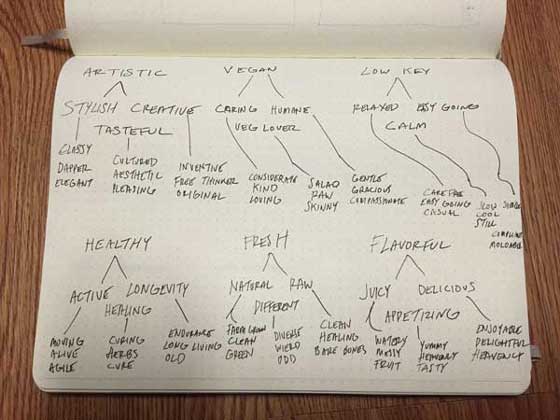 ARTISTIC
STYLISH CREATIVE
TASTEFUL
CLASSY
DAPPER
ELEGANT
CULTURED
AESTHETIC
PLEASING
INVENTIVE
FREE THINKER
ORIGINAL
VEGAN
CARING HUMANE
VEG LOVER
CONSIDERATE
KIND
LOVING
SALAD
RAW
SKINNY
GENTLE
GRACIOUS
COMPASSIONATE
LOW KEY
RELAXED EASY GOING
CALM
CAREFREE
EASY GOING
CASUAL
SLOW
COOL
STILL
SIMPLE
COMPLIANT
MOLDABLE
HEALTHY
ACTIVE LONGEVITY
HEALING
MOVING
ALIVE
AGILE
CURING
HERBS
CURE
ENDURANCE
LONG LIVING
OLD
FRESH
NATURAL RAW
DIFFERENT
FARM GROWN
CLEAN
GREEN
DIVERSE
WIERD
ODD
CLEAN
HEALING
BARE BONES
FLAVORFUL
JUICY DELICIOUS
APPETIZING
WATERY
MESSY
FRUIT
YUMMY
HEAVENLY
TASTY
ENJOYABLE
DELIGHTFUL
HEAVENLY